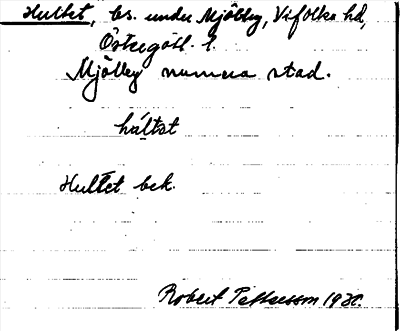 Hultet, bs. under Mjölby, Vifolka hd,
Östergötl. l.
Mjölby numera stad.
hàltət
Hultet bek.
Robert Pettersson 1930.